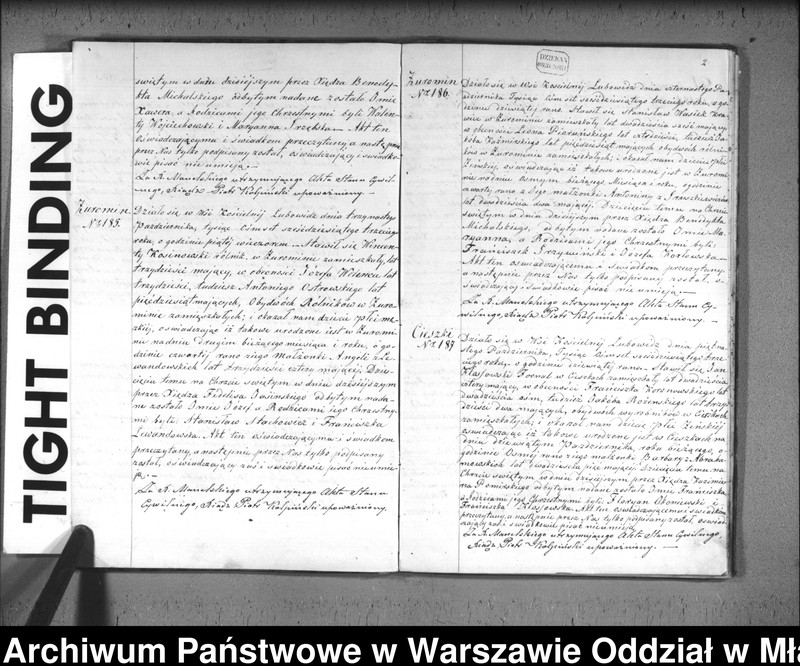 TIGHT BINDING
świętym w dniu dzisiejszym przez Xiędza Benedy-
kta Michalskiego odbytym nadane zostało Imie
Xawera, a Rodzicami jego Chrzestnymi byli Walen-
ty Wojciechowski i Maryanna Akt ten
oświadczającemu i świadkom przeczytany a następnie
przez Nas tylko podpisany został, oświadczający i świadko-
wie pisać nie umieją. —
Za A. Manelskiego utrzymującego Akta Stanu Cywil-
nego, Xiądz Piotr Kolpiński upoważniony. —
Żuromin
No 185.
Działo się w Wsi Kościelnej Lubowidz dnia trzynastego
Października, tysiąc Ośmset sześćdziesiątego trzeciego
roku, o godzinie piątej wieczorem. — Stawił się Wincen-
ty Kosinowski rólnik, w Żurominie zamieszkały, lat
trzydzieści mający, w obecności Józefa lat
trzydzieści, tudzież Antoniego Ostrowskiego lat
pięćdziesiąt mających, Obydwóch Rólników w Żuro-
minie zamieszkałych; i okazał nam dziecie płci mę-
zkiej, oświadczając iż takowe urodzone jest w Żuromi-
nie na dniu Drugim bieżącego miesiąca i roku, o go-
dzinie czwartej rano z jego Małżonki Angeli z Le-
wandowskich lat trzydzieści cztery mającej, Dzie-
cięciu temu na Chrzcie świętym w dniu dzisiejszym
przez Xiędza Fidelisa Jasińskiego odbytym nada-
ne zostało Imie Józef a Rodzicami jego Chrzestny-
mi byli Stanisław Stachowicz i Franciszka
Lewandowska. Akt ten oświadczającemu i świadkom
przeczytany, a następnie przez Nas tylko podpisany
został, oświadczający zaś i świadkowie pisać nie umie-
ją. —
Za A. Manelskiego utrzymującego Akta Stanu
Cywilnego, Xiądz Piotr Kolpiński upoważniony.
2
Żuromin
No 186.
Działo się w Wsi Kościelnej Lubowidz dnia czternastego Pa-
ździernika Tysiąc Ośmset sześćdziesiątego trzeciego roku, o go-
dzinie dziewiątej rano. — Stawił się Stanisław Wasiek
w Żurominie zamieszkały lat dwadzieścia sześć mający,
w obecności Leona lat tudzież Ja-
kóba lat pięćdziesiąt mających, obydwóch rólni-
ków w Żurominie zamieszkałych; i okazał nam dziecie płci
żeńskiej, oświadczając iż takowe urodzone jest w Żuromi-
nie na dniu Ósmym bieżącego Miesiąca i roku, o godzinie
czwartej rano z jego małżonki Antoniny z
lat dwadzieścia dwa mającej. Dziecięciu temu na Chrzcie
świętym w dniu dzisiejszym przez Xiędza Benedykta
Michalskiego, odbytym nadane zostało Imie Ma-
ryanna, a Rodzicami jego Chrzestnymi byli
Franciszek i Józefa Karłowska. —
Akt ten oświadczającemu i świadkom przeczytany,
a następnie przez Nas tylko podpisany został, o-
świadczający i świadkowie pisać nie umieją. —
Za A. Manelskiego utrzymującego Akta Stanu Cy-
wilnego, Xiądz Piotr Kolpiński upoważniony. —
Cieszki
No 187
Działo się w Wsi Kościelnej Lubowidz dnia piętna-
stego Października, Tysiąc Ośmset sześćdziesiątego trze-
ciego roku, o godzinie dziewiątej rano. — Stawił się Jan
w Cieszkach zamieszkały lat dwadzieścia
cztery mający, w obecności Franciszka lat
dwadzieścia ośm, tudzież Jakóba lat trzy-
dzieści dwa mających, obydwóch wyrobników w Cieszkach
zamieszkałych; i okazał nam dziecie płci żeńskiej
oświadczając iż takowe urodzone jest w Cieszkach na
dniu dziewiątym Października roku bieżącego, o
godzinie Ósmej rano z jego małżonki Barbary z Abraha-
mowskich lat dwadzieścia mającej Dziecięciu temu na
Chrzcie świętym w dniu dzisiejszym przez Xiędza Kazimie-
rza odbytym nadane zostało Imie Franciszka
a Rodzicami jego Chrzestnymi byli Floryan i
Franciszka Akt ten oświadczającemu i świadkom
przeczytany, a następnie przez Nas tylko podpisany został, oświad-
czający zaś i świadkowie pisać nie umieją.
Za A. Manelskiego utrzymującego Akta Stanu Cywilnego,
Xiądz Piotr Kolpiński upoważniony. —
Archiwum Państwowe w Warszawie Oddział w Mła